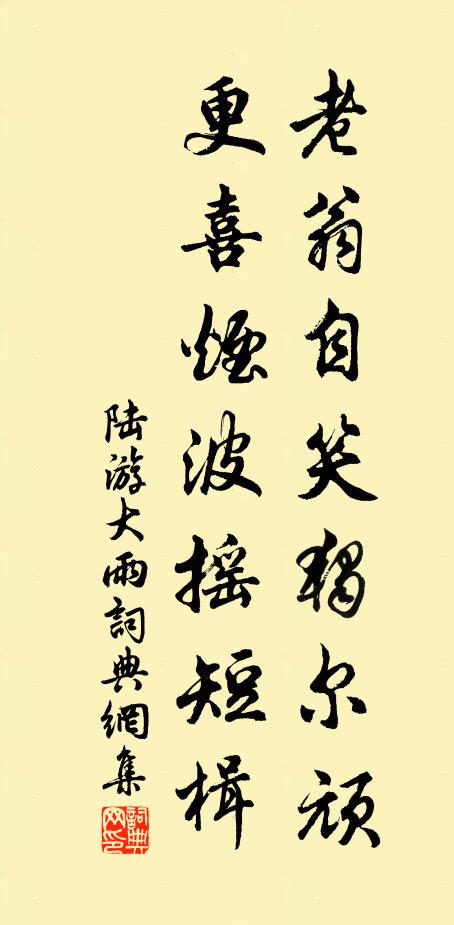 老翁自笑獨尔頑
更喜煙波摇短楫
陆游大雨詞典網集
詞典網印